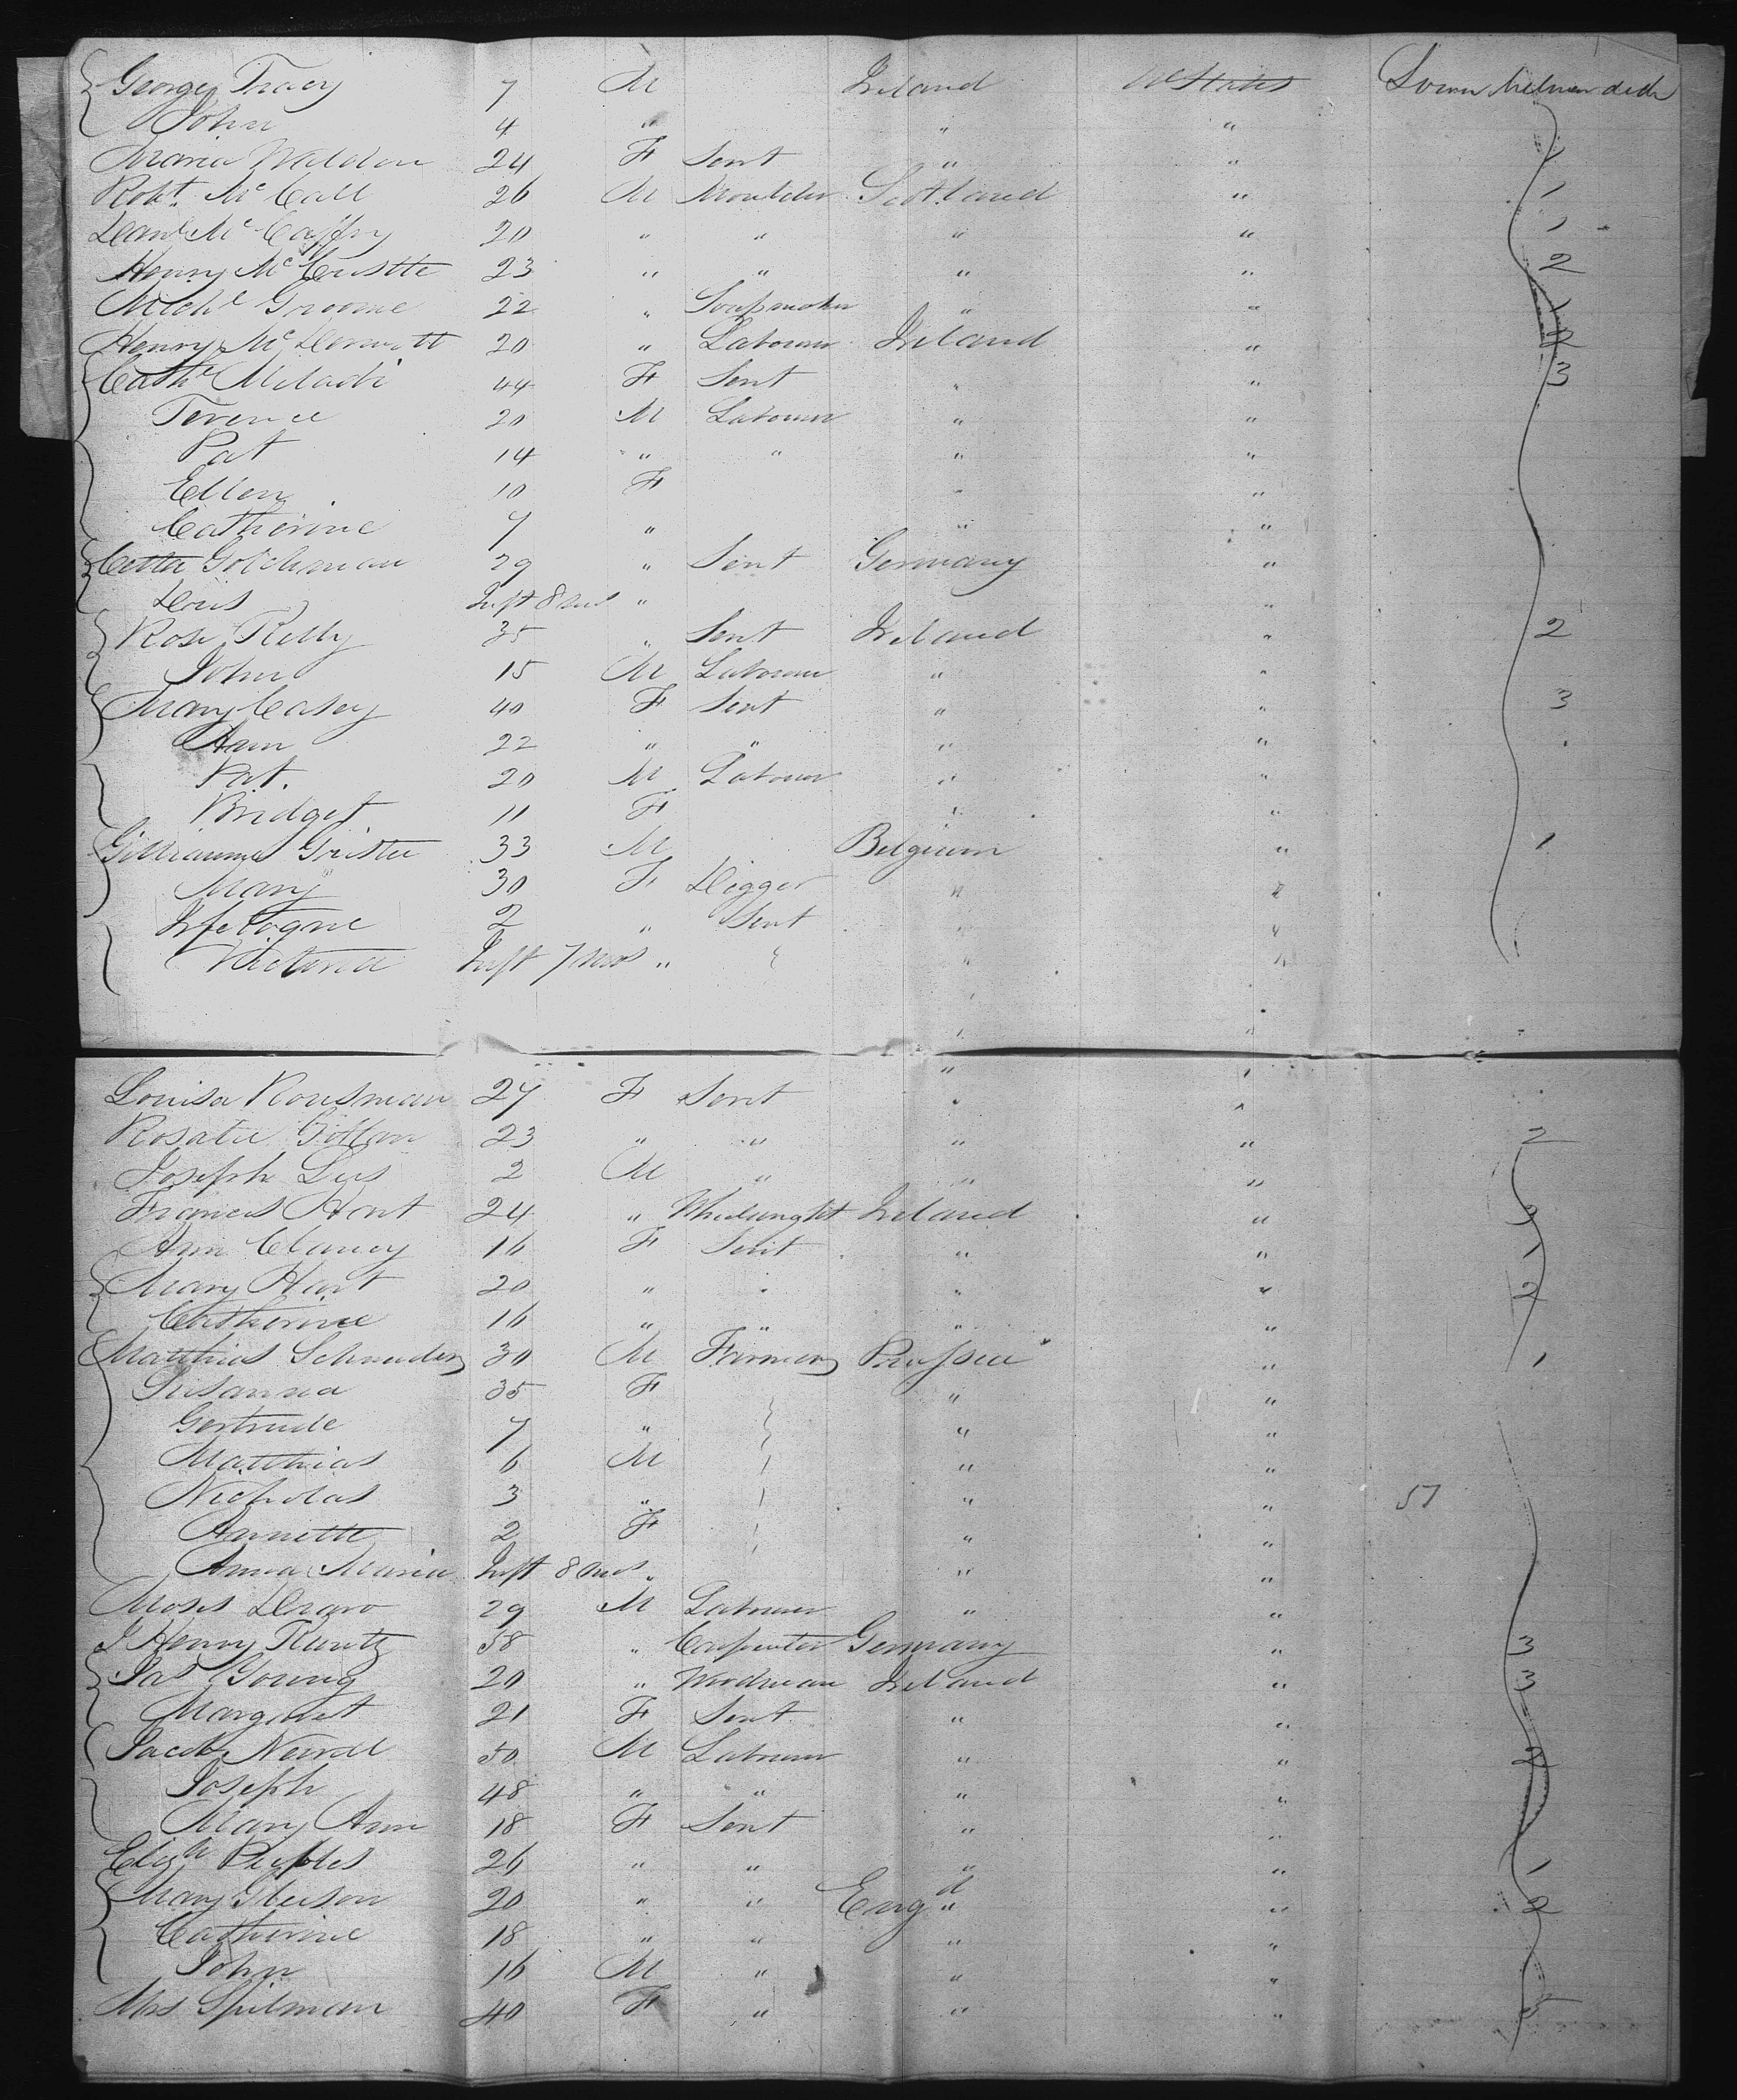 George Tracy 7 M Ireland U States Lower between deck
John 4 " " "
Maria Waldon 24 F Sert " "
Robt. McCall 26 M Moulder Scotland " 1
Danl McCaffry 20 " " " " 1
Henry McCristle 23 " " " " 2
Michl Groome 22 " Soapmaker " " 1
Henry McDermott 20 " Labourer Ireland "
Cathe Miladi 44 F Sert " " 3
Terence 20 M Labourer " "
Pat 14 " " " "
Ellen 10 F " "
Catherine 7 " " "
29 " Sert Germany "
Inft 8 mos " "
Rose Kelly 35 " Sert Ireland " 2
John 15 M Labourer " "
Mary Casey 40 F Sert " " 3
Ann 22 " " " "
Pat. 20 M Labourer " "
Bridget 11 F " "
33 M Belgium " 1
Mary 30 F Digger " "
2 " Sert " "
Victoria Inft 7 mos " " "
Louisa Rousman 27 F Sert " "
Rosalie 23 " " " " 2
Joseph 2 M " " "
Frances Hart 24 " Wheelwright Ireland "
Ann Clancy 16 F Sert " " 1
Mary Hart 20 " " " " 2
Catherine 16 " " " "
Matthias Schneider 30 M Farmer Prussia " 1
Susanna 35 F " "
Gertrude 7 " " "
Matthias 6 M " "
Nicholas 3 " " " 57
2 F " "
Anna Maria Inft 8 mos " " "
Moses 29 M Labourer " "
J Henry Kuntz 38 " Carpenter Germany " 3
Jas Young 20 " Woodman Ireland " 3
Margaret 21 F Sert " "
Jacob 50 M Labourer " " 2
Joseph 48 " " " "
Mary Ann 18 F Sert " "
Elizh Peebles 26 " " " " 1
Mary Gleeson 20 " " Engd " " 2
Catherine 18 " " " "
John 16 M " " "
Mrs Spilman 40 F " " " 5